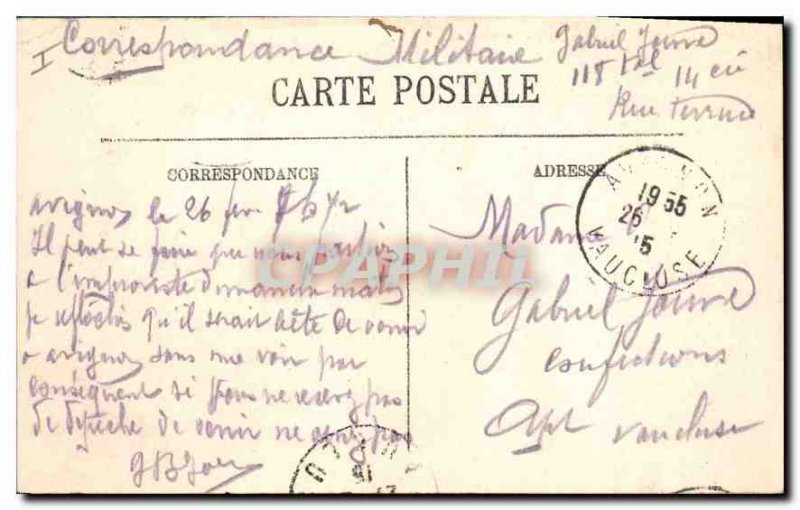 Correspondance Militaire
Gabriel Jouve
118 14 cie
CARTE POSTALE
CORRESPONDANCE
ADRESSE
AVIGNON
1955
26
15
VAUCLUSE
avignon le 26
Il peut se faire que nous
a l'improviste demain mais
je qu'il serait bête de venir
a avignon sans me voir par
conséquent si vous ne recevez pas
de dépêche de venir ne venez pas
Madame
Gabriel Jouve
confections
Apt vaucluse
CPAPHIL